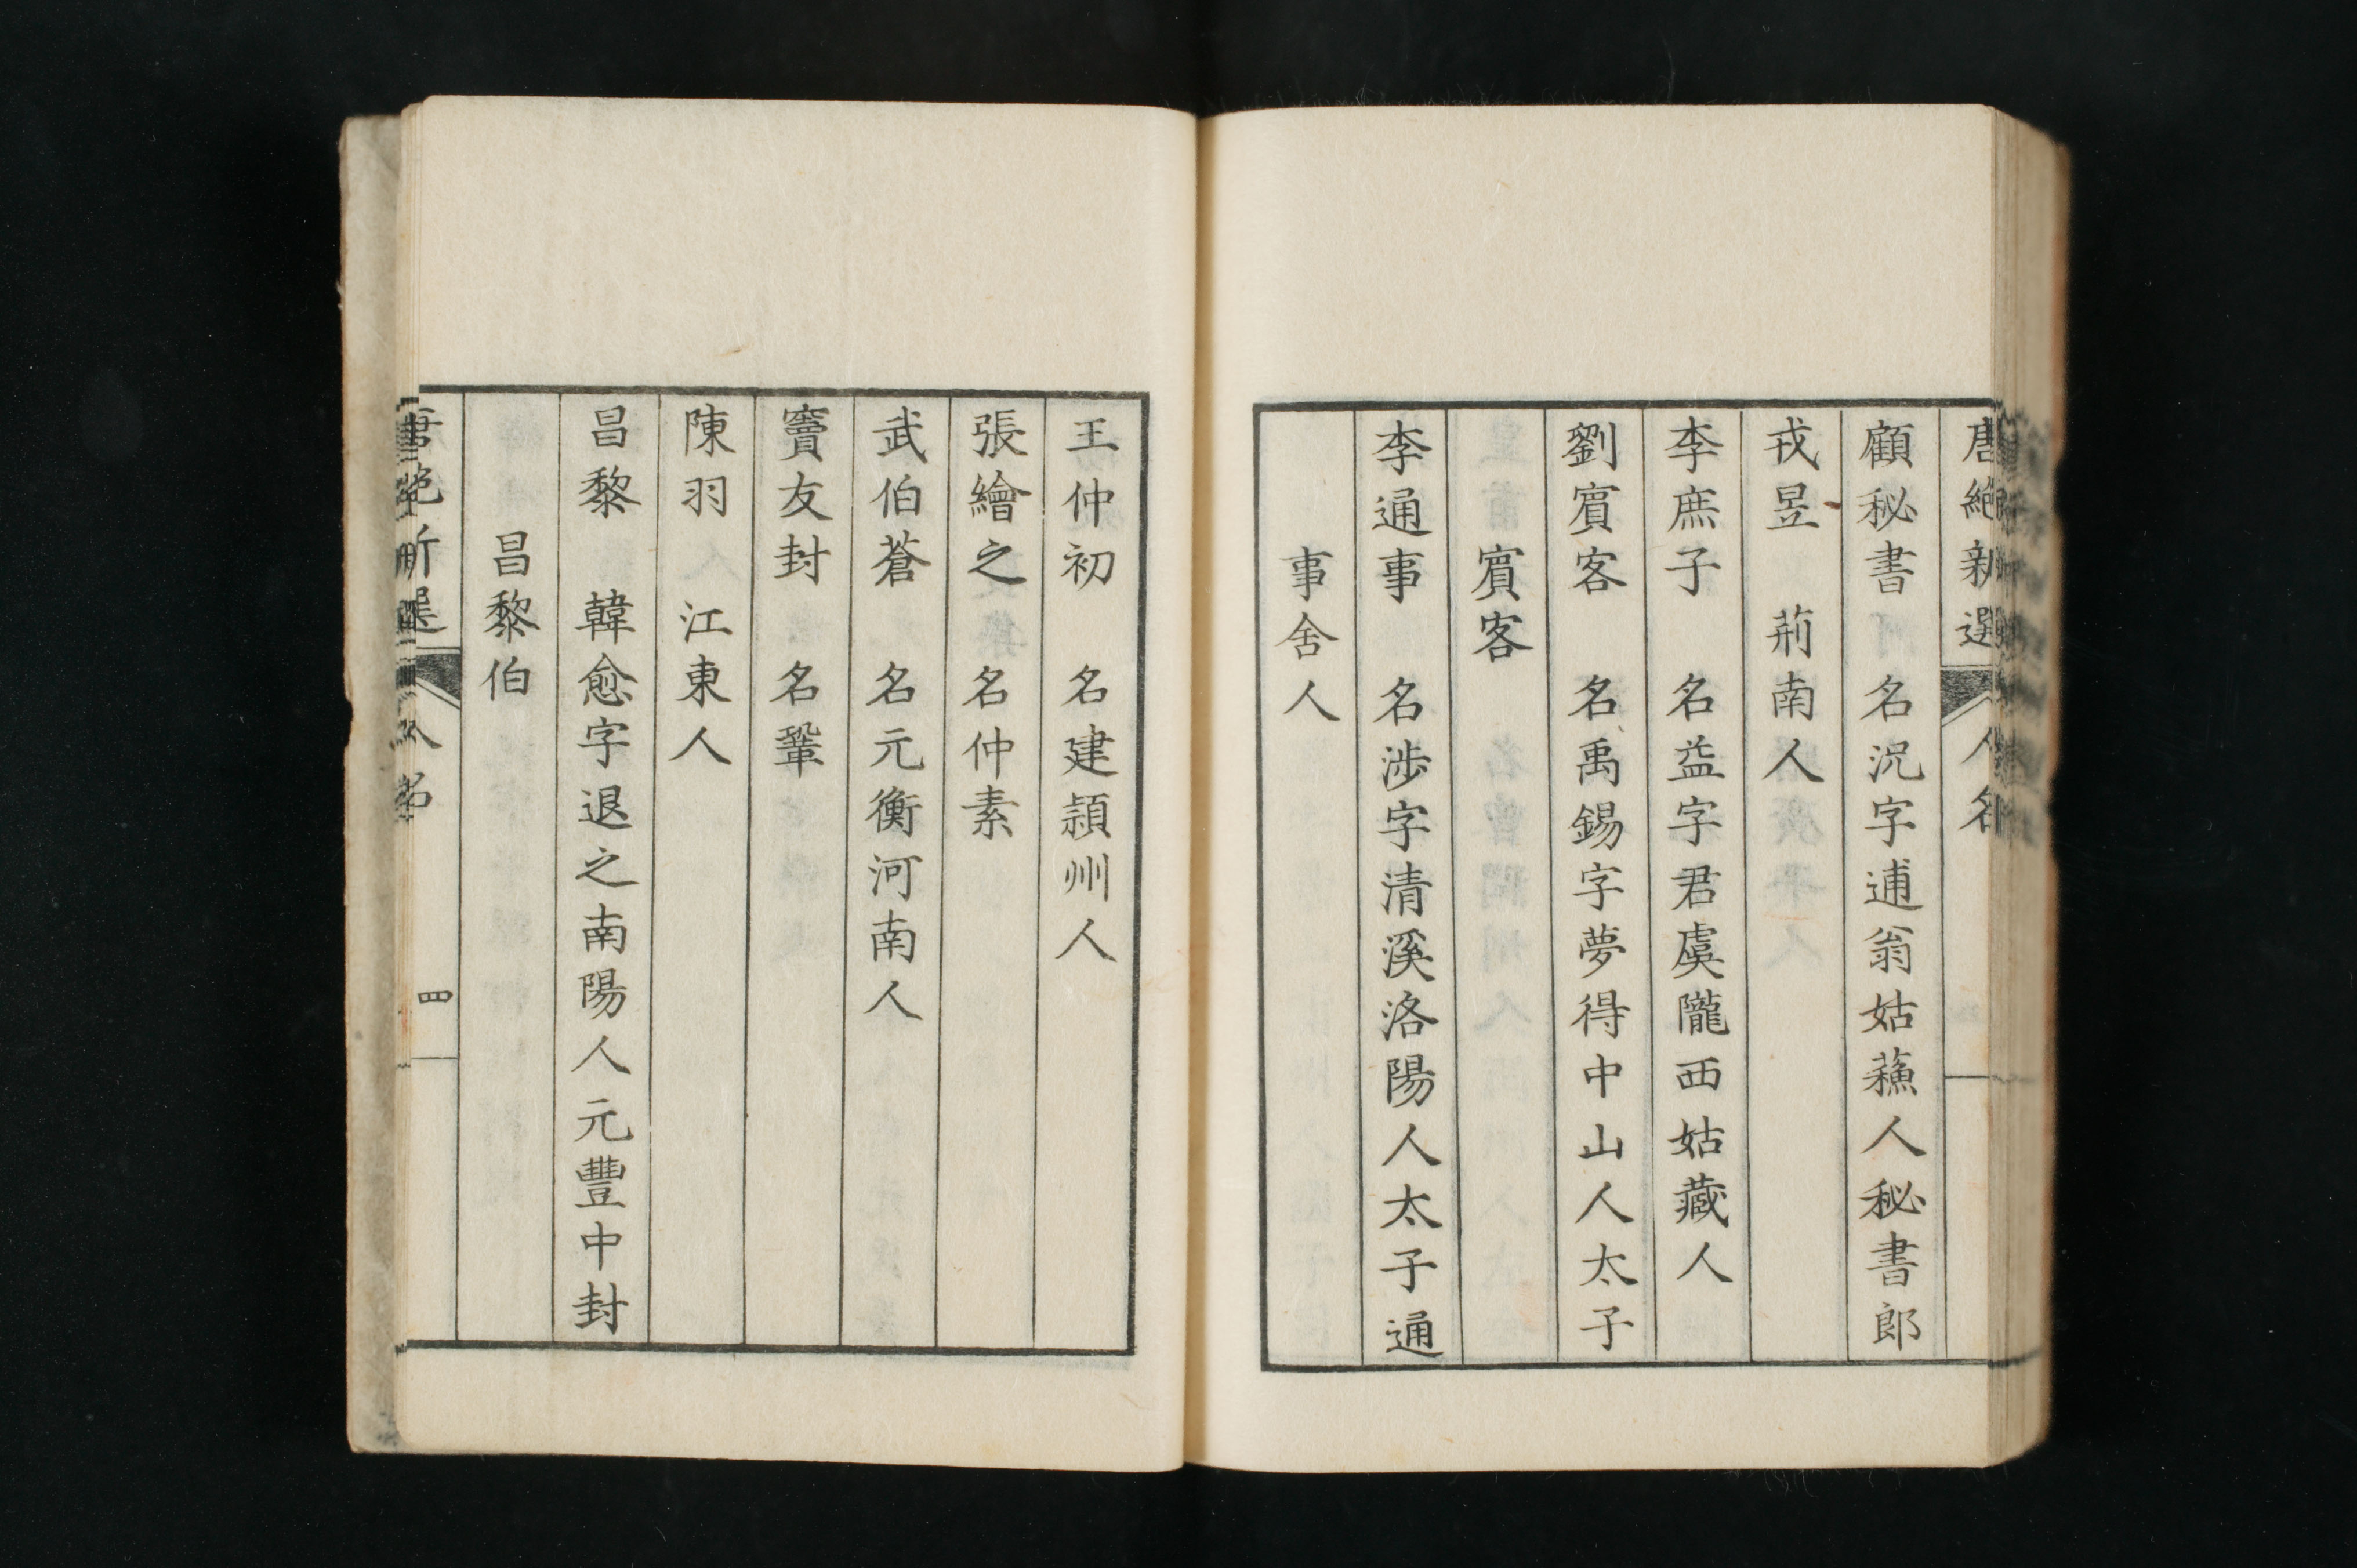 唐絶新選 人名
顧秘書 名況字逋翁姑蘓人秘書郎
戎昱 荊南人
李庶子 名益字君虞隴西姑藏人
劉賓客 名禹錫字夢得中山人太子
賓客
李通事 名涉字清溪洛陽人太子通
事舍人
王仲初 名建頴州人
張繪之 名仲素
武伯蒼 名元衡河南人
竇友封 名鞏
陳羽 江東人
昌黎 韓愈字退之南陽人元豐中封
昌黎伯
唐絶新選 人名 四